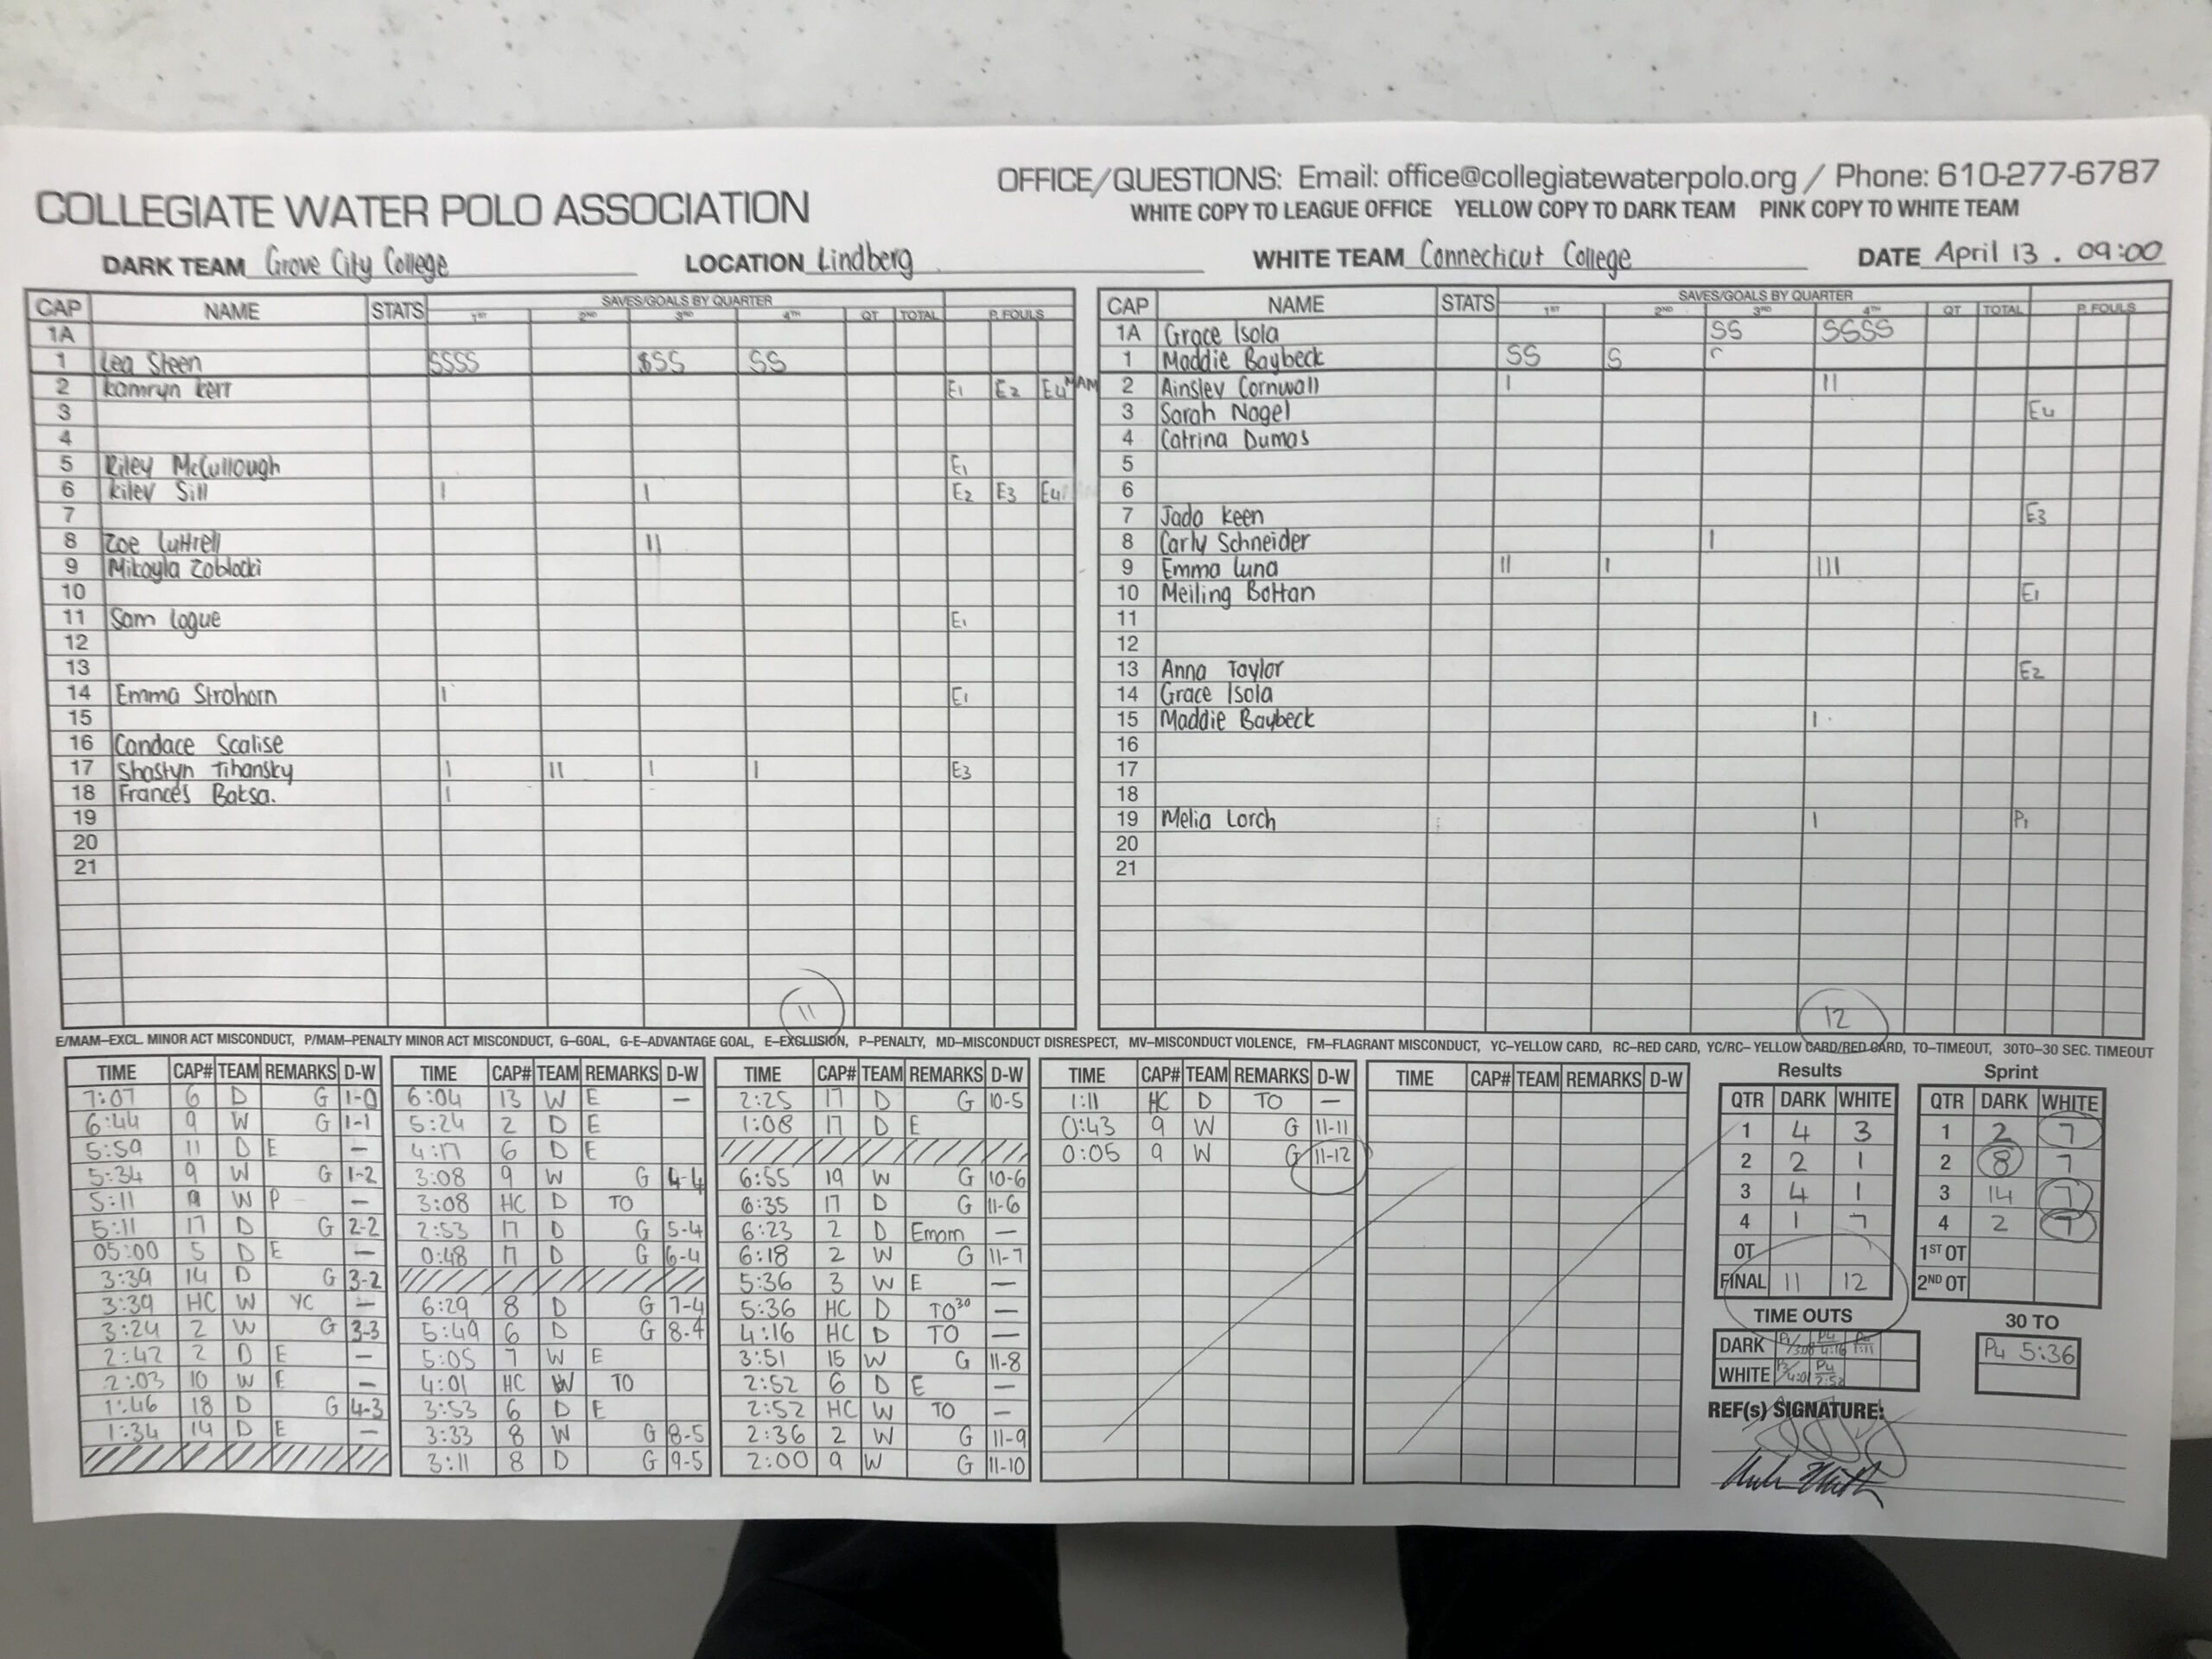 OFFICE/QUESTIONS: Email: office@collegiatewaterpolo.org / Phone: 610-277-6787
COLLEGIATE WATER POLO ASSOCIATION
WHITE COPY TO LEAGUE OFFICE YELLOW COPY TO DARK TEAM PINK COPY TO WHITE TEAM
DARK TEAM Grove City College LOCATION Lindberg WHITE TEAM Connecticut College DATE April 13 . 09:00
CAP NAME STATS SAVES/GOALS BY QUARTER 1ST 2ND 3RD 4TH OT TOTAL P. FOULS
1A
1 Lea Steen SSSS SSS SS
2 Kamryn Kerr E1 E2 E4 MAM
3
4
5 Riley McCullough E1
6 Kiley Sill I I E2 E3 E4
7
8 Zoe Luttrell II
9 Mikayla Zoblocki
10
11 Sam Logue E1
12
13
14 Emma Strahorn I E1
15
16 Candace Scalise
17 Shastyn Tihansky I II I I E3
18 Frances Baksa. I
19
20
21
11
CAP NAME STATS SAVES/GOALS BY QUARTER 1ST 2ND 3RD 4TH OT TOTAL P. FOULS
1A Grace Isola SS SSSS
1 Maddie Baybeck SS S
2 Ainsley Cornwall I II
3 Sarah Nagel E4
4 Catrina Dumas
5
6
7 Jada Keen E3
8 Carly Schneider I
9 Emma Luna II I III
10 Meiling Bottan E1
11
12
13 Anna Taylor E2
14 Grace Isola
15 Maddie Baybeck I
16
17
18
19 Melia Lorch I P1
20
21
12
E/MAM–EXCL. MINOR ACT MISCONDUCT, P/MAM–PENALTY MINOR ACT MISCONDUCT, G–GOAL, G-E–ADVANTAGE GOAL, E–EXCLUSION, P–PENALTY, MD–MISCONDUCT DISRESPECT, MV–MISCONDUCT VIOLENCE, FM–FLAGRANT MISCONDUCT, YC–YELLOW CARD, RC–RED CARD, YC/RC–YELLOW CARD/RED CARD, TO–TIMEOUT, 30TO–30 SEC. TIMEOUT
TIME CAP# TEAM REMARKS D-W
7:07 6 D G 1-0
6:44 9 W G 1-1
5:59 11 D E —
5:34 9 W G 1-2
5:11 9 W P —
5:11 17 D G 2-2
05:00 5 D E —
3:39 14 D G 3-2
3:39 HC W YC —
3:24 2 W G 3-3
2:42 2 D E —
2:03 10 W E —
1:46 18 D G 4-3
1:34 14 D E —
TIME CAP# TEAM REMARKS D-W
6:04 13 W E —
5:24 2 D E
4:17 6 D E
3:08 9 W G 4-4
3:08 HC D TO
2:53 17 D G 5-4
0:48 17 D G 6-4
6:29 8 D G 7-4
5:49 6 D G 8-4
5:05 7 W E
4:01 HC W TO
3:53 6 D E
3:33 8 W G 8-5
3:11 8 D G 9-5
TIME CAP# TEAM REMARKS D-W
2:25 17 D G 10-5
1:08 17 D E
6:55 19 W G 10-6
6:35 17 D G 11-6
6:23 2 D Emam —
6:18 2 W G 11-7
5:36 3 W E —
5:36 HC D TO30 —
4:16 HC D TO —
3:51 15 W G 11-8
2:52 6 D E —
2:52 HC W TO —
2:36 2 W G 11-9
2:00 9 W G 11-10
TIME CAP# TEAM REMARKS D-W
1:11 HC D TO —
0:43 9 W G 11-11
0:05 9 W G 11-12
TIME CAP# TEAM REMARKS D-W
Results
QTR DARK WHITE
1 4 3
2 2 1
3 4 1
4 1 7
OT
FINAL 11 12
Sprint
QTR DARK WHITE
1 2 7
2 8 7
3 14 7
4 2 7
1ST OT
2ND OT
TIME OUTS
DARK P4 4:16 1:11
WHITE P3/4:01 P4 2:52
30 TO
P4 5:36
REF(s) SIGNATURE: